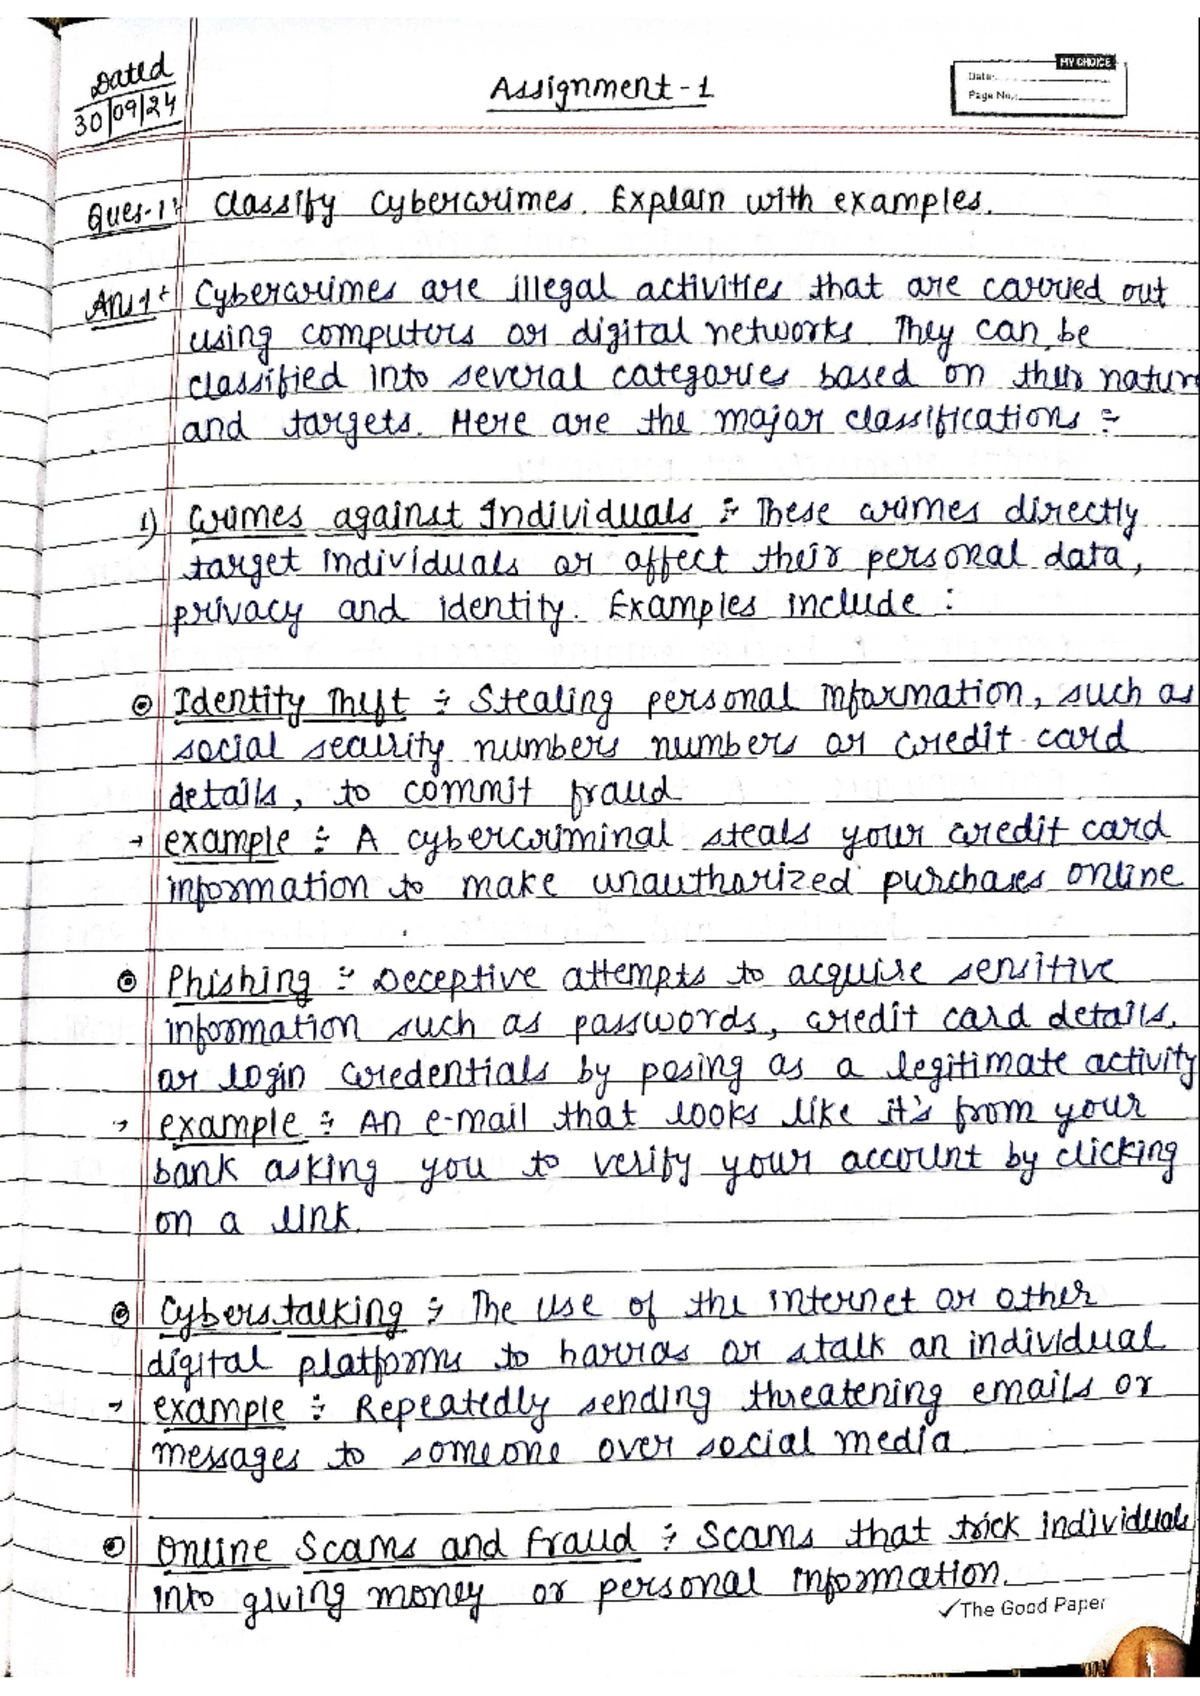 Dated
30/09/24
Assignment-1
MY CHOICE
Date:
Page No.:
Ques-1: Classify Cybercrimes. Explain with examples.
Ans1: Cybercrimes are illegal activities that are carried out
using computers or digital networks. They can be
classified into several categories based on their natur
and targets. Here are the major classifications :-
1) Crimes against Individuals :- These crimes directly
target individuals or affect their personal data,
privacy and identity. Examples include :
Identity Theft :- Stealing personal information, such as
social security numbers numbers or credit card
details, to commit fraud
→ example :- A cybercriminal steals your credit card
information to make unauthorized purchases online
Phishing :- Deceptive attempts to acquire sensitive
information such as passwords, credit card details,
or login credentials by posing as a legitimate activity
→ example :- An e-mail that looks like it's from your
bank asking you to verify your account by clicking
on a link.
Cyberstalking :- The use of the internet or other
digital platforms to harras or stalk an individual
→ example :- Repeatedly sending threatening emails or
messages to someone over social media.
Online Scams and Fraud :- Scams that trick individuals
into giving money or personal information.
✓The Good Paper